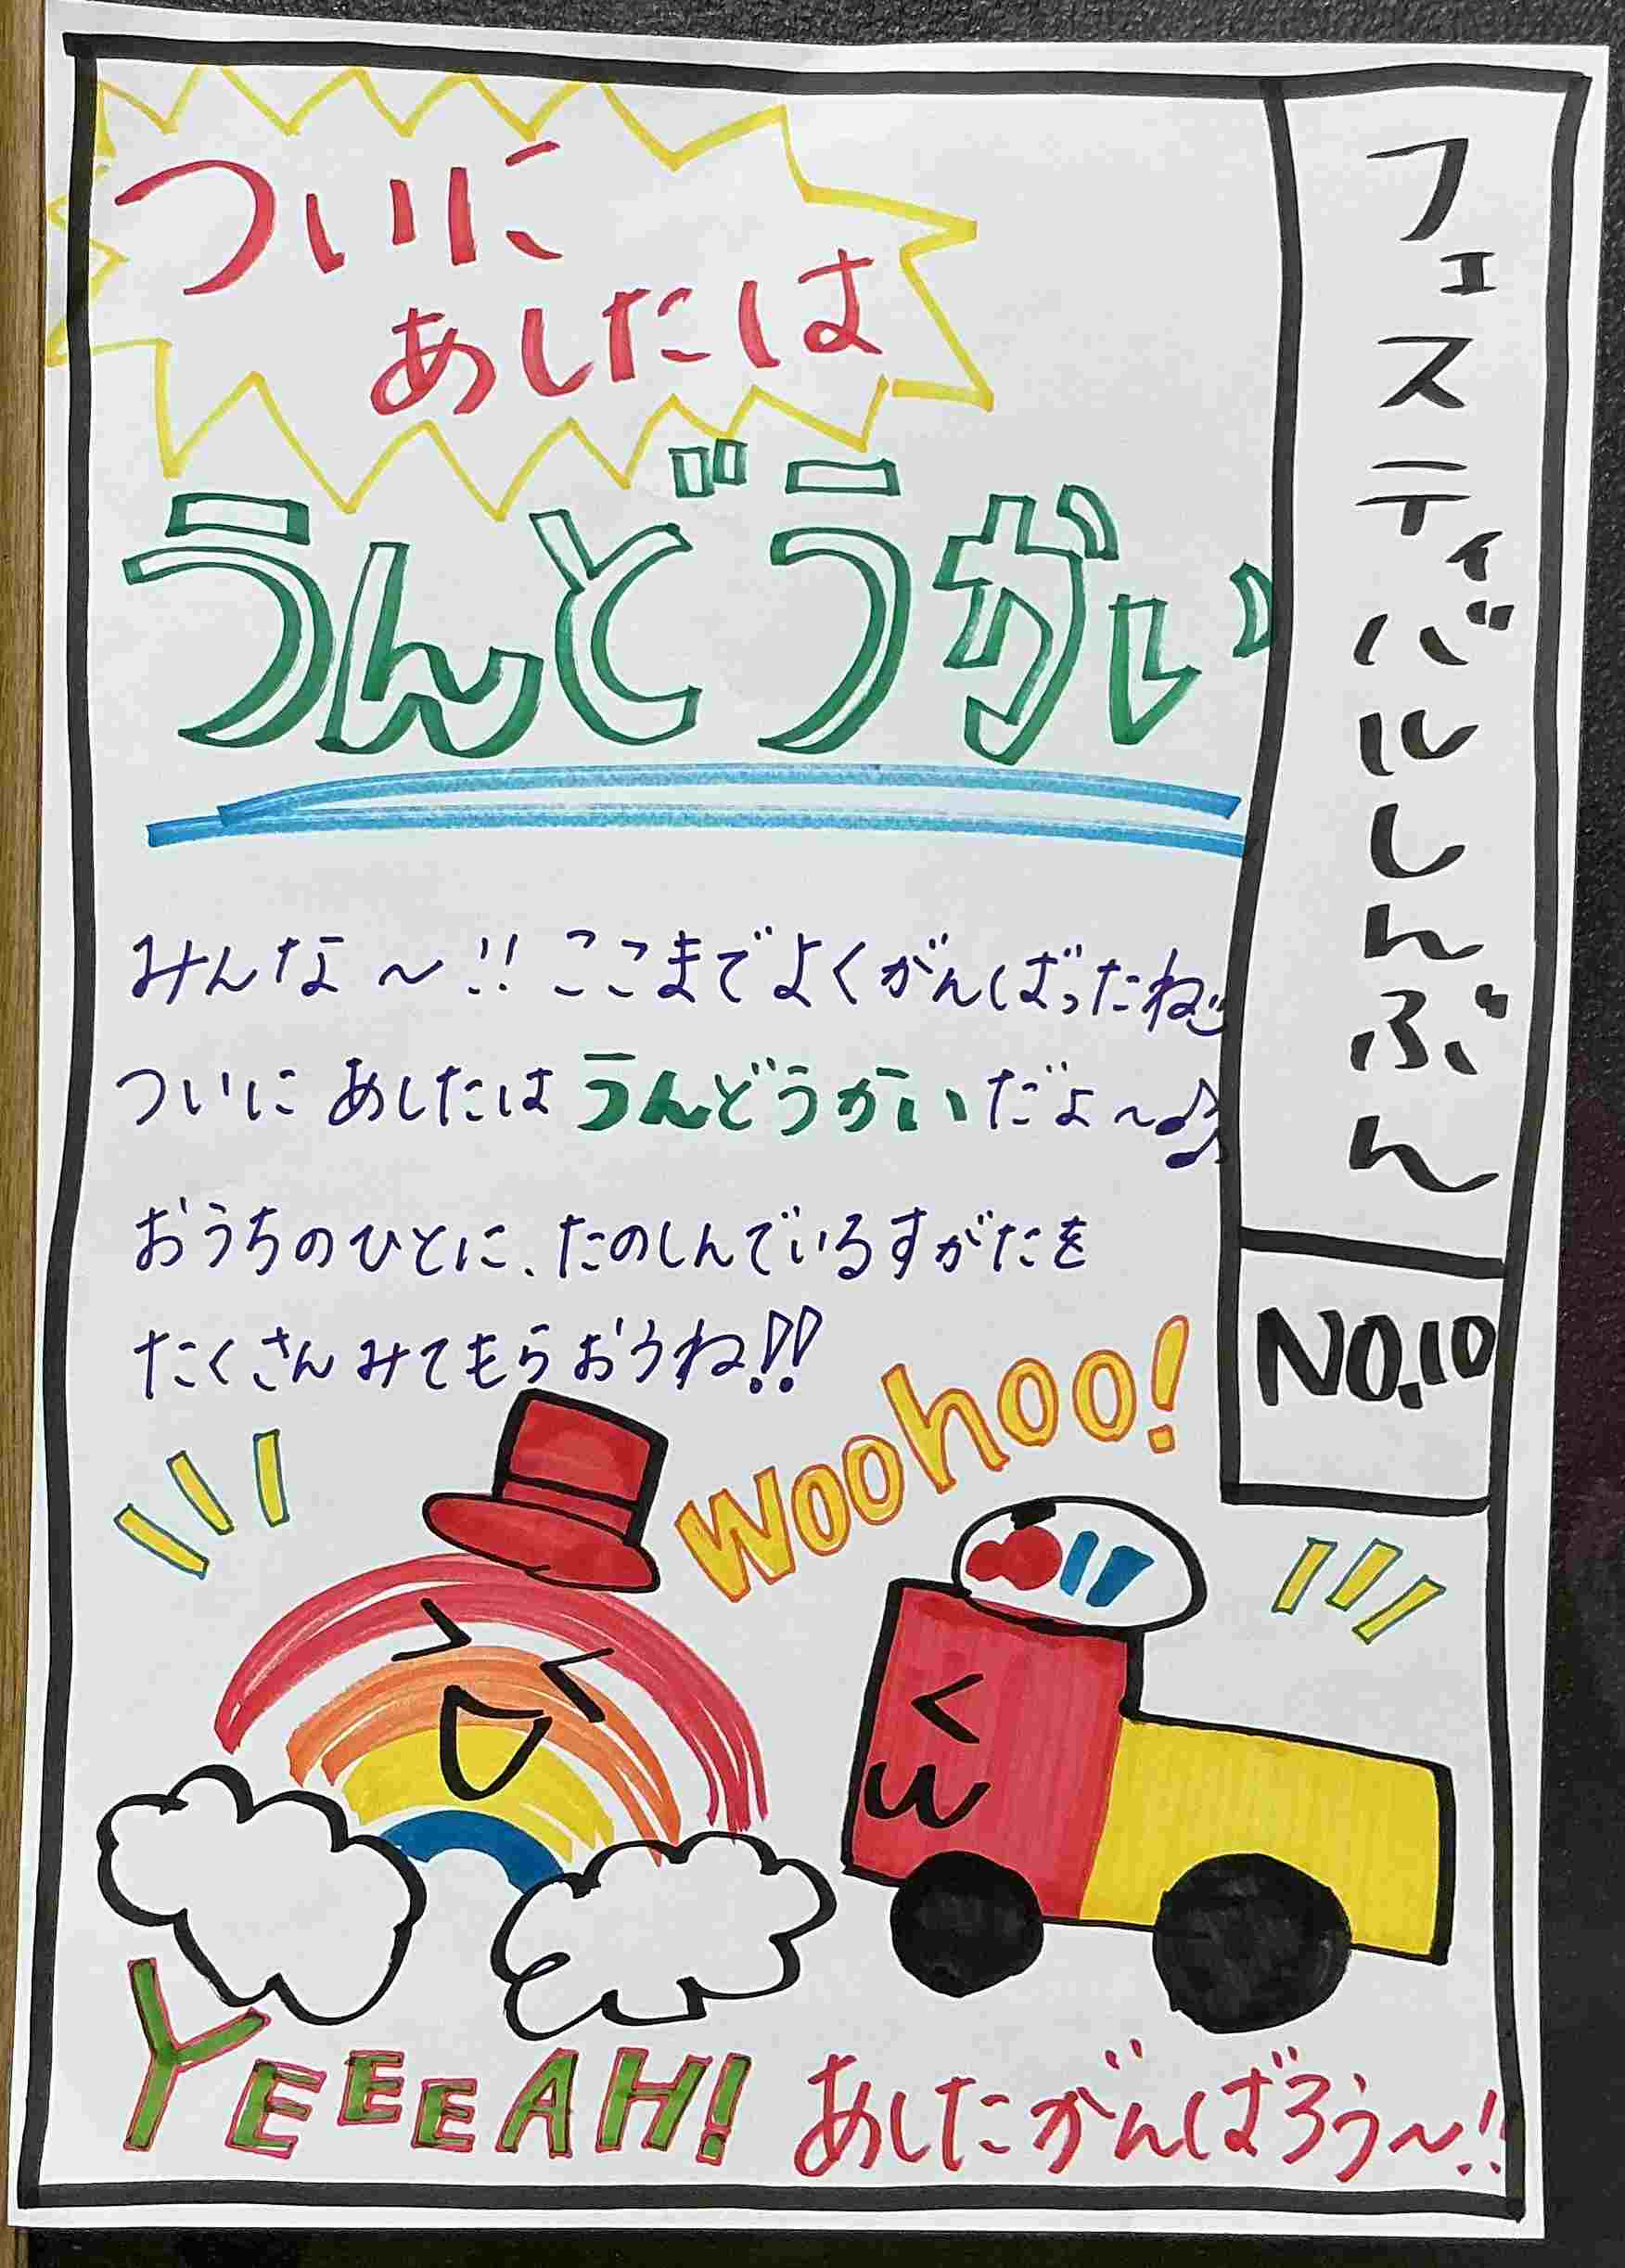 フェスティバルしんぶん
NO.10
ついに
あしたは
うんどうかい
みんな〜!!ここまでよくがんばったね
ついに あしたは うんどうかいだよ〜♪♪
おうちのひとに、たのしんでいるすがたを
たくさんみてもらおうね!!
Woohoo!
YEEEAH!
あしたがんばろう〜!!